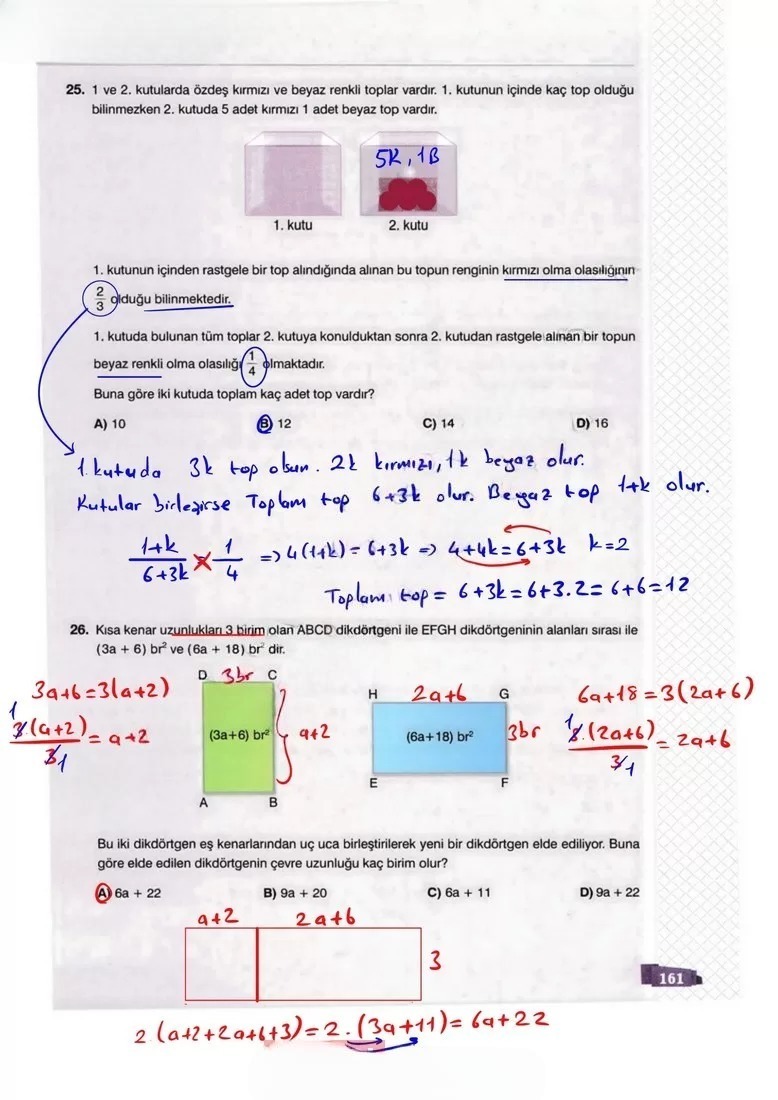 25. 1 ve 2. kutularda özdeş kırmızı ve beyaz renkli toplar vardır. 1. kutunun içinde kaç top olduğu
bilinmezken 2. kutuda 5 adet kırmızı 1 adet beyaz top vardır.
5K, 1B
1. kutu 2. kutu
1. kutunun içinden rastgele bir top alındığında alınan bu topun renginin kırmızı olma olasılığının
2/3 olduğu bilinmektedir.
1. kutuda bulunan tüm toplar 2. kutuya konulduktan sonra 2. kutudan rastgele alınan bir topun
beyaz renkli olma olasılığı 1/4 olmaktadır.
Buna göre iki kutuda toplam kaç adet top vardır?
A) 10 B) 12 C) 14 D) 16
1. kutuda 3k top olsun. 2k kırmızı, 1k beyaz olur.
Kutular birleşirse Toplam top 6+3k olur. Beyaz top 1+k olur.
1+k/6+3k × 1/4 => 4(1+k) = 6+3k => 4+4k=6+3k k=2
Toplam top = 6+3k=6+3.2=6+6=12
26. Kısa kenar uzunlukları 3 birim olan ABCD dikdörtgeni ile EFGH dikdörtgeninin alanları sırası ile
(3a + 6) br² ve (6a + 18) br² dir.
D 3br C
3a+6=3(a+2)
3.(a+2)/3 = a+2
1
1
(3a+6) br²
a+2
A B
H 2a+6 G
(6a+18) br²
3br
E F
6a+18=3(2a+6)
3.(2a+6)/3 = 2a+6
1
1
Bu iki dikdörtgen eş kenarlarından uç uca birleştirilerek yeni bir dikdörtgen elde ediliyor. Buna
göre elde edilen dikdörtgenin çevre uzunluğu kaç birim olur?
A) 6a + 22 B) 9a + 20 C) 6a + 11 D) 9a + 22
a+2 2a+6
3
161
2.(a+2+2a+6+3)=2.(3a+11)=6a+22